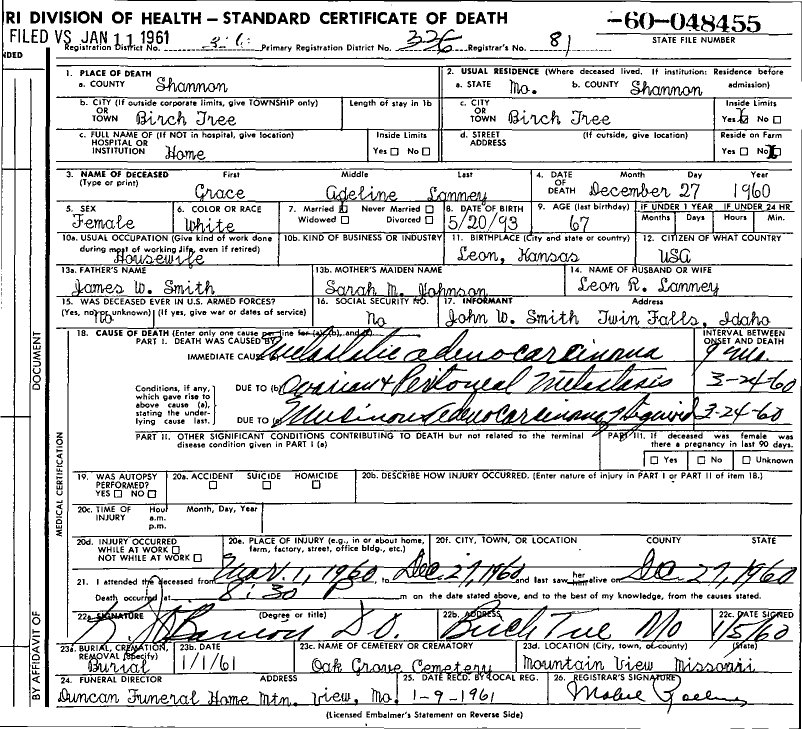 RI DIVISION OF HEALTH — STANDARD CERTIFICATE OF DEATH
-60-048455
FILED VS JAN 11 1961
Registration District No. Primary Registration District No. 336 Registrar's No. 81
STATE FILE NUMBER
NDED
1. PLACE OF DEATH
a. COUNTY Shannon
2. USUAL RESIDENCE (Where deceased lived. If institution: Residence before admission)
a. STATE Mo. b. COUNTY Shannon
b. CITY (If outside corporate limits, give TOWNSHIP only)
OR TOWN Birch Tree
Length of stay in 1b
c. CITY OR TOWN Birch Tree
Inside Limits
Yes No
c. FULL NAME OF (If NOT in hospital, give location)
HOSPITAL OR INSTITUTION Home
Inside Limits
Yes No
d. STREET ADDRESS (If outside, give location)
Reside on Farm
Yes No
3. NAME OF DECEASED (Type or print)
First Middle Last
Grace Adeline Lanney
4. DATE OF DEATH
Month Day Year
December 27 1960
5. SEX
Female
6. COLOR OR RACE
White
7. Married Never Married
Widowed Divorced
8. DATE OF BIRTH
5/20/93
9. AGE (last birthday)
67
IF UNDER 1 YEAR
Months Days
IF UNDER 24 HR
Hours Min.
10a. USUAL OCCUPATION (Give kind of work done during most of working life, even if retired)
Housewife
10b. KIND OF BUSINESS OR INDUSTRY
11. BIRTHPLACE (City and state or country)
Leon, Kansas
12. CITIZEN OF WHAT COUNTRY
USA
13a. FATHER'S NAME
James W. Smith
13b. MOTHER'S MAIDEN NAME
Sarah M. Johnson
14. NAME OF HUSBAND OR WIFE
Leon R. Lanney
15. WAS DECEASED EVER IN U.S. ARMED FORCES?
(Yes, no, unknown) (If yes, give war or dates of service)
No
16. SOCIAL SECURITY NO.
No
17. INFORMANT Address
John W. Smith Twin Falls, Idaho
18. CAUSE OF DEATH (Enter only one cause per line for (a), (b), and (c))
PART I. DEATH WAS CAUSED BY:
IMMEDIATE CAUSE Metastatic adenocarcinoma
INTERVAL BETWEEN ONSET AND DEATH
9 mo.
Conditions, if any, which gave rise to above cause (a), stating the underlying cause last.
DUE TO (b) Ovarian & Peritoneal Metastasis 3-24-60
DUE TO (c) Mucinous adenocarcinoma of 3-24-60
PART II. OTHER SIGNIFICANT CONDITIONS CONTRIBUTING TO DEATH but not related to the terminal disease condition given in PART I (a)
PART III. If deceased was female was there a pregnancy in last 90 days.
Yes No Unknown
19. WAS AUTOPSY PERFORMED?
YES NO
20a. ACCIDENT SUICIDE HOMICIDE
20b. DESCRIBE HOW INJURY OCCURRED. (Enter nature of injury in PART I or PART II of item 18.)
20c. TIME OF INJURY Hour Month, Day, Year
a.m.
p.m.
20d. INJURY OCCURRED
WHILE AT WORK
NOT WHILE AT WORK
20e. PLACE OF INJURY (e.g., in or about home, farm, factory, street, office bldg., etc.)
20f. CITY, TOWN, OR LOCATION COUNTY STATE
21. I attended the deceased from 1, 1960 to Dec. 27, 1960 and last saw her alive on Dec. 27, 1960
Death occurred at 8:30 P m on the date stated above, and to the best of my knowledge, from the causes stated.
22a. SIGNATURE (Degree or title)
D.O.
22b. ADDRESS
Birch Tree Mo
22c. DATE SIGNED
1/5/60
23a. BURIAL, CREMATION, REMOVAL (Specify)
Burial
23b. DATE
1/1/61
23c. NAME OF CEMETERY OR CREMATORY
Oak Grove Cemetery
23d. LOCATION (City, town, or county) (State)
Mountain View Missouri
24. FUNERAL DIRECTOR ADDRESS
Duncan Funeral Home Mtn. View, Mo.
25. DATE RECD. BY LOCAL REG.
1-9-1961
26. REGISTRAR'S SIGNATURE
Mabel
(Licensed Embalmer's Statement on Reverse Side)
DOCUMENT
MEDICAL CERTIFICATION
BY AFFIDAVIT OF